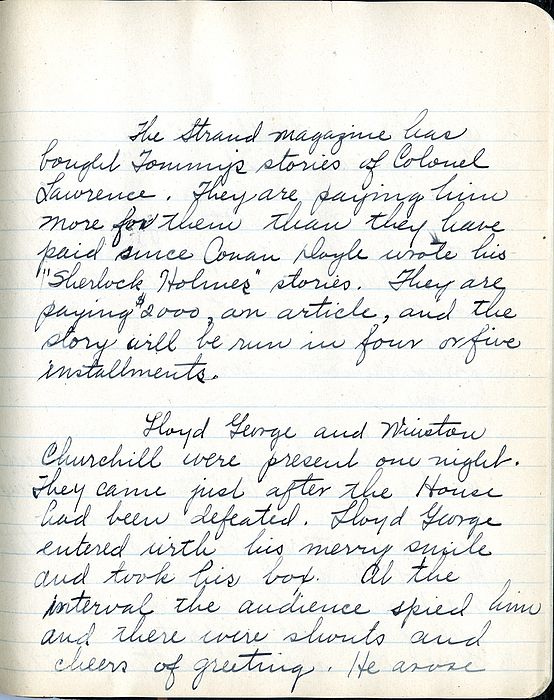 The Strand magazine has
bought Tommy's stories of Colonel
Lawrence. They are paying him
more for them than they have
paid since Conan Doyle wrote his
"Sherlock Holmes" stories. They are
paying $2000, an article, and the
story will be run in four or five
installments.
Lloyd George and Winston
Churchill were present one night.
They came just after the House
had been defeated. Lloyd George
entered with his merry smile
and took his box. At the
interval the audience spied him
and there were shouts and
cheers of greeting. He arose